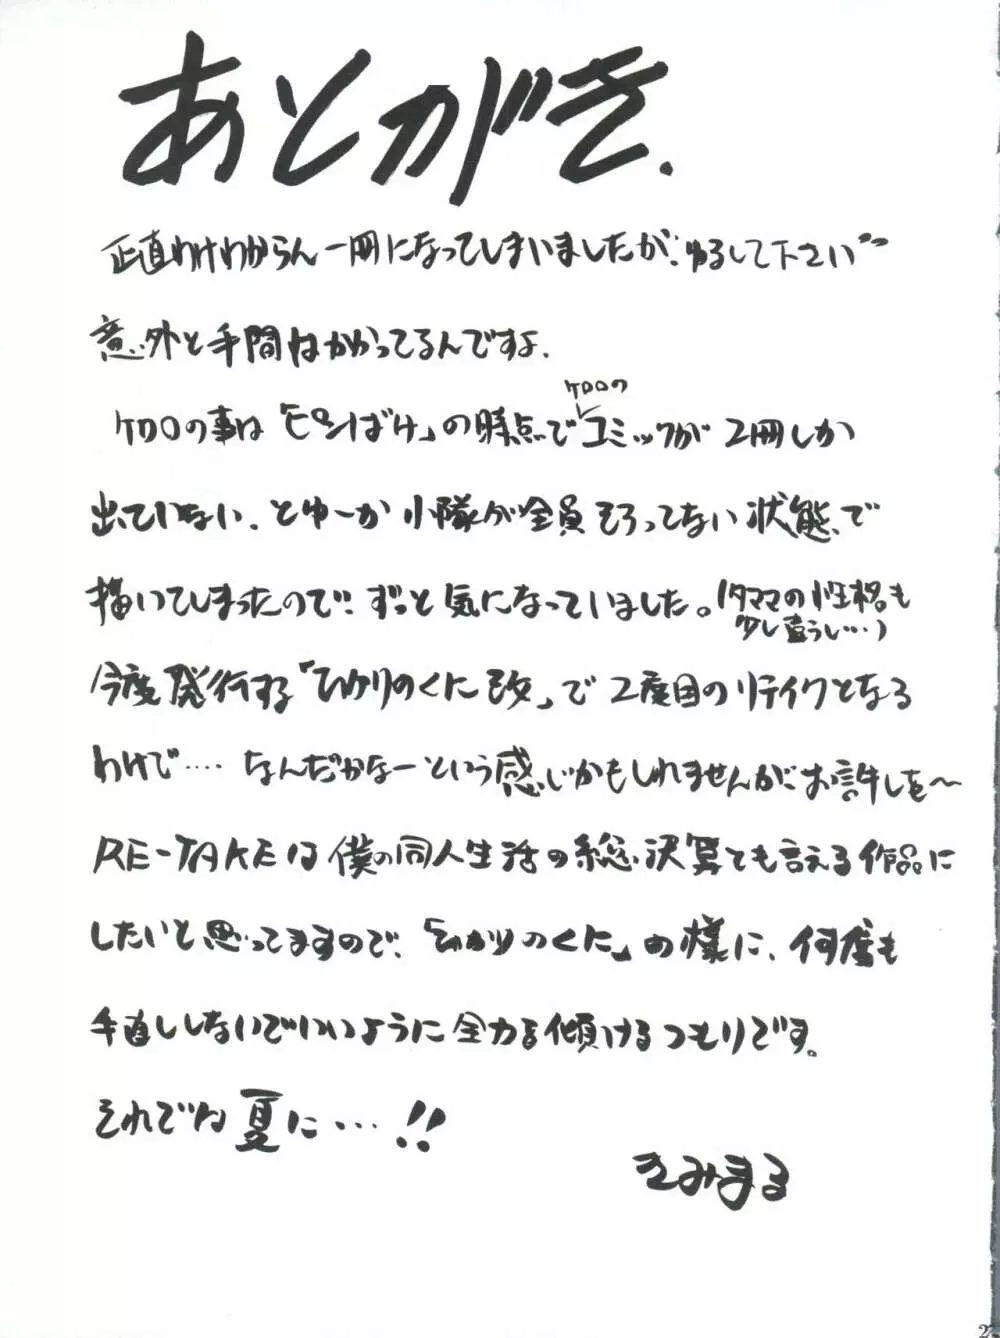 あとがき.
正直わけわからん一冊になってしまいましたが、ゆるして下さい
意外と手間はかかってるんですよ.
ケロロの
ケロロの事は「ピンばけ」の時点でコミックが2冊しか
出ていない、とゆーか小隊が全員そろってない状態で
描いてしまったので、ずっと気になっていました。(タママの性格も
少し違うし…)
今度発行する「ひかりのくに改」で2度目のリテイクとなる
わけで…. なんだかなーという感じかもしれませんがお許しを〜
RE-TAKEは僕の同人生活の総決算とも言える作品に
したいと思ってますので、「ひかりのくに」の様に、何度も
手直ししないでいいように全力を傾けるつもりです。
それでは夏に…!!
きみまる